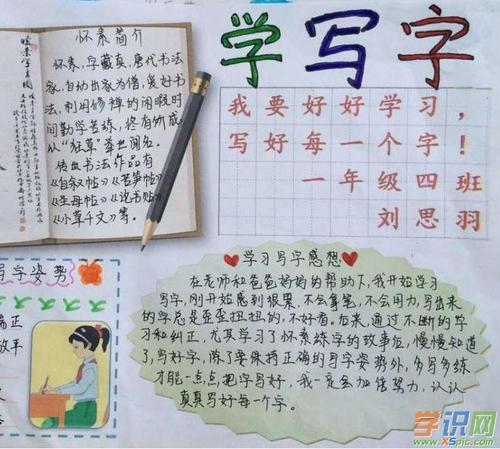 学写字
怀素简介
怀素,字藏真,唐代书法
家,自幼出家为僧,爱好书
法,利用修禅的闲暇时
间勤学苦练,终有所成
从"狂草"幸世闻名。
传世书法作品有
《自叙帖》《苦笋帖》
《圣母帖》《论书帖》
《小草千文》等。
我要好好学习,
写好每一个字!
一年级四班
刘思羽
写字姿势
端正
放平
学习写字感想
在老师和爸爸妈妈的帮助下,我开始学习
写字,刚开始感到很累,不会拿笔,不会用力,写出来
的字总是歪歪扭扭的,不好看。后来,通过不断的学
习和纠正,尤其学习了怀素练字的故事后,慢慢知道
了,写好字,除了要保持正确的写字姿势外,多写多练
才能一点点把字写好,我一定会加倍努力,认认
真真写好每一个字。
学识网
www.xSpic.com